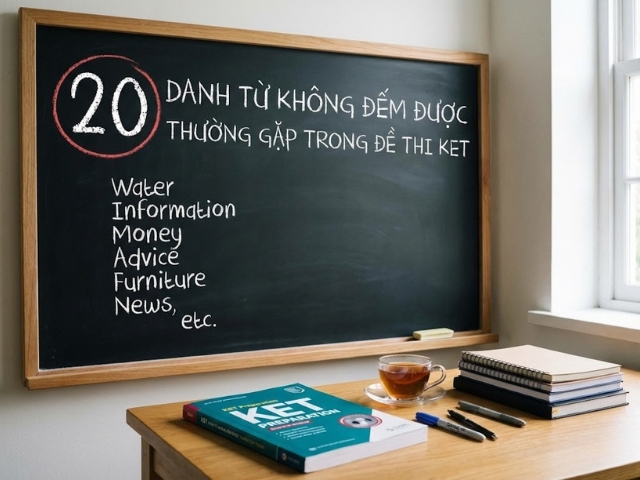 20
DANH TỪ KHÔNG ĐẾM ĐƯỢC
THƯỜNG GẶP TRONG ĐỀ THI KET
Water
Information
Money
Advice
Furniture
News,
etc.
KET
PREPARATION